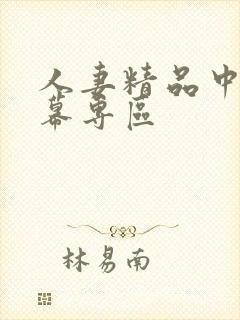 人妻精品中
幕专區
林易南